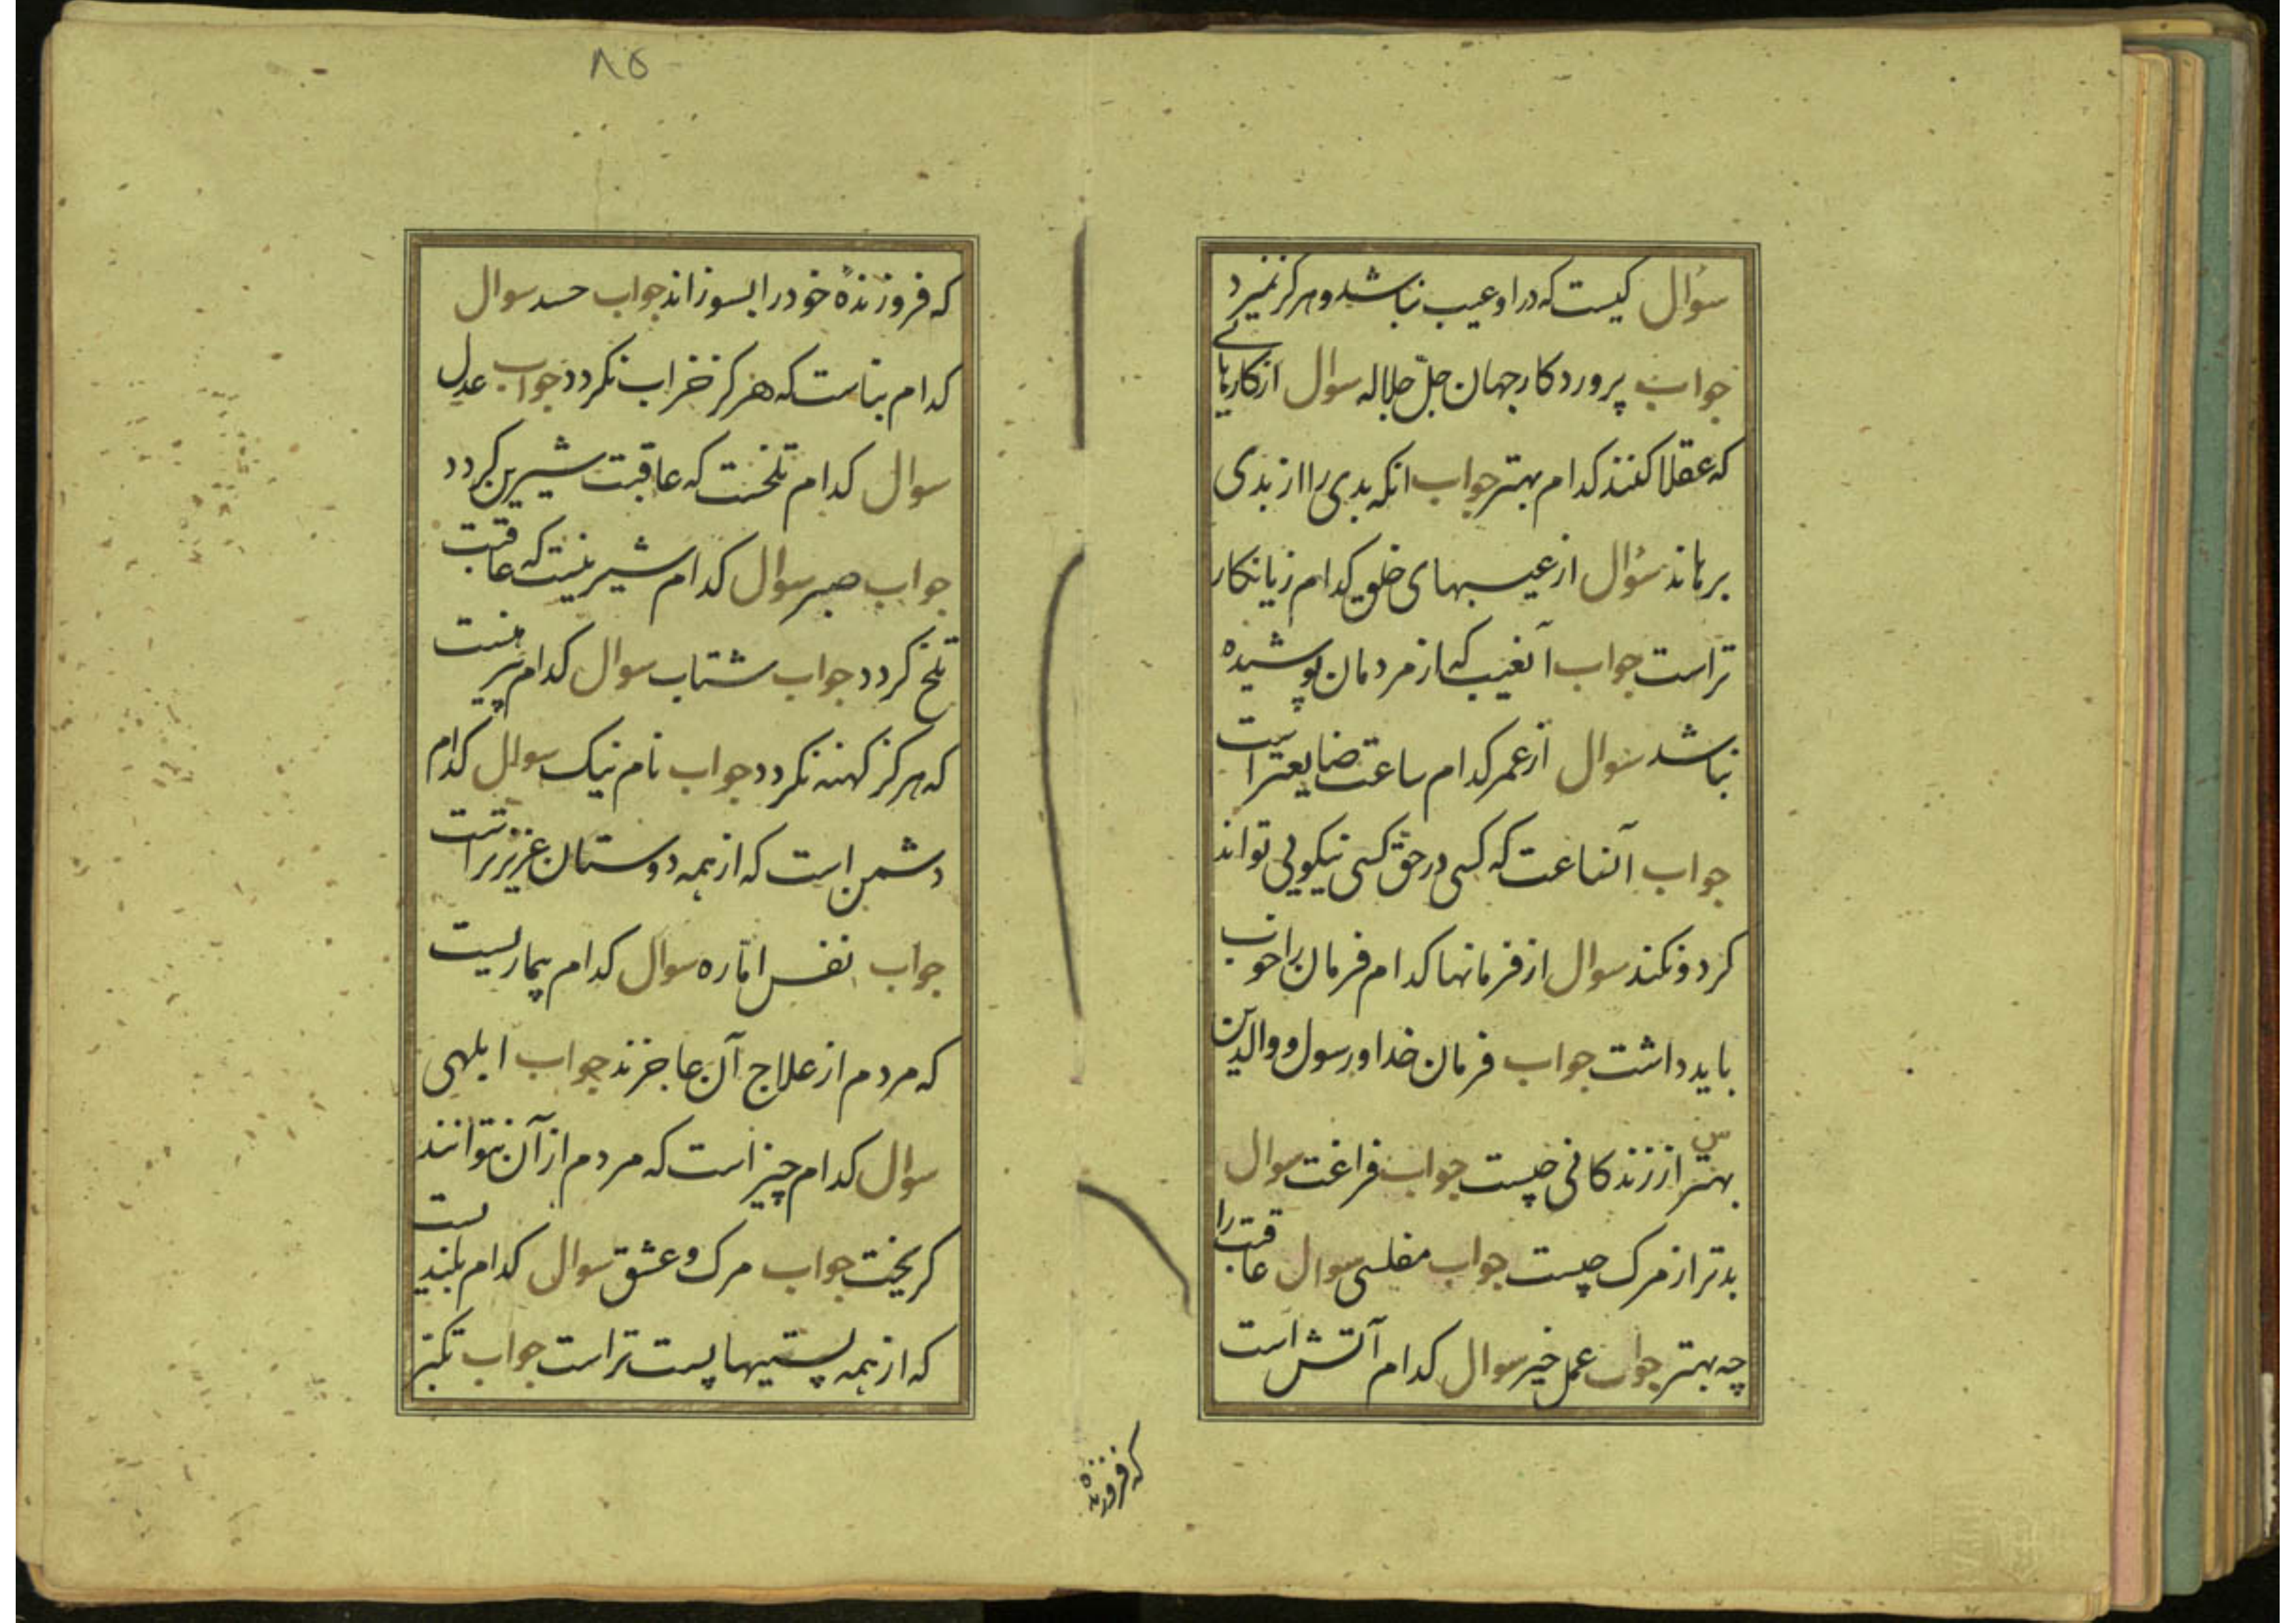 سؤال کیست که در او عیب نباشد و هرکز نمیرد
جواب پروردکار جهان جلّ جلاله سوال از کارهائے
که عقلا کنند کدام بهتر جواب انکه بدی را از بدی
برهاند سؤال از عیبهای خلق کدام زیانکار
تر است جواب آنعیب که از مردمان پوشیده
نباشد سوال از عمر کدام ساعت ضایعتر است
جواب آنساعت که کسی در حق کسی نیکویی تواند
کرد و نکند سوال از فرمانها کدام فرمان را خوب
باید داشت جواب فرمان خدا و رسول و والدین
س
بهتر از زندکانی چیست جواب فراغت سوال
بدتر از مرک چیست جواب مفلسی سوال عاقبت را
چه بهتر جواب عمل خیر سوال کدام آتش است
که فروزنده
۸۵
که فروزندهٔ خود را بسوزاند جواب حسد سوال
کدام بناست که هرکز خراب نکردد جواب عدل
سوال کدام تلخست که عاقبت شیرین کردد
جواب صبر سوال کدام شیرینیست که عاقبت
تلخ کردد جواب شتاب سوال کدام پیرهنست
که هرکز کهنه نکردد جواب نام نیک سوال کدام
دشمن است که از همه دوستان عزیزتر است
جواب نفس امّاره سوال کدام بیماریست
که مردم از علاج آن عاجزند جواب ابلهی
سوال کدام چیز است که مردم از آن نتوانند
کریخت جواب مرک و عشق سوال کدام بلندیست
که از همه پستیها پست تر است جواب تکبّر